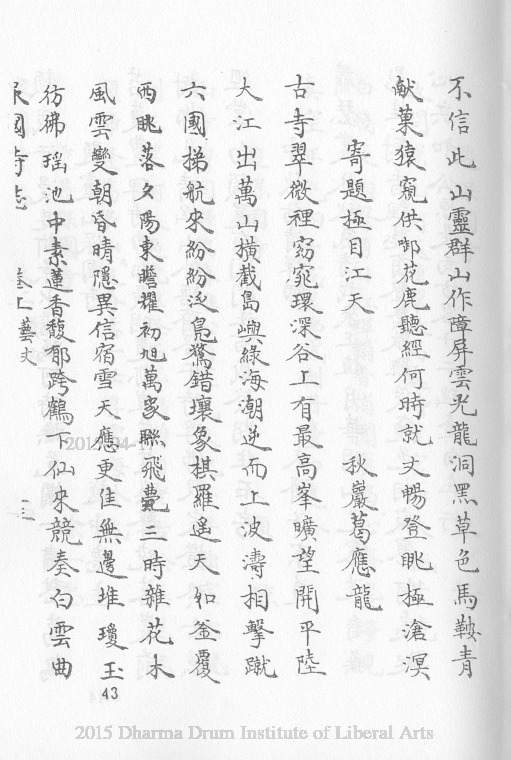 不信此山靈群山作障屏雲光龍洞黑草色馬鞍青
献菓猿窺供啣花鹿聽經何時就丈暢登眺極滄溟
寄題極目江天 秋巖葛應龍
古寺翠微裡窈窕環深谷上有最高峯曠望開平陸
大江出萬山橫截島嶼綠海潮逆而上波濤相擊蹴
六國梯航來紛紛泛鳧鷖錯壤象棋羅遥天如釜覆
西眺落夕陽東瞻耀初旭萬家聯飛甍三時雜花木
風雲變朝昏晴隱異信宿雪天應更佳無邊堆瓊玉
彷彿瑶池中素蓮香馥郁跨鶴下仙來競奏白雲曲
國寺志 卷上藝文 一三
43
2015 Dharma Drum Institute of Liberal Arts